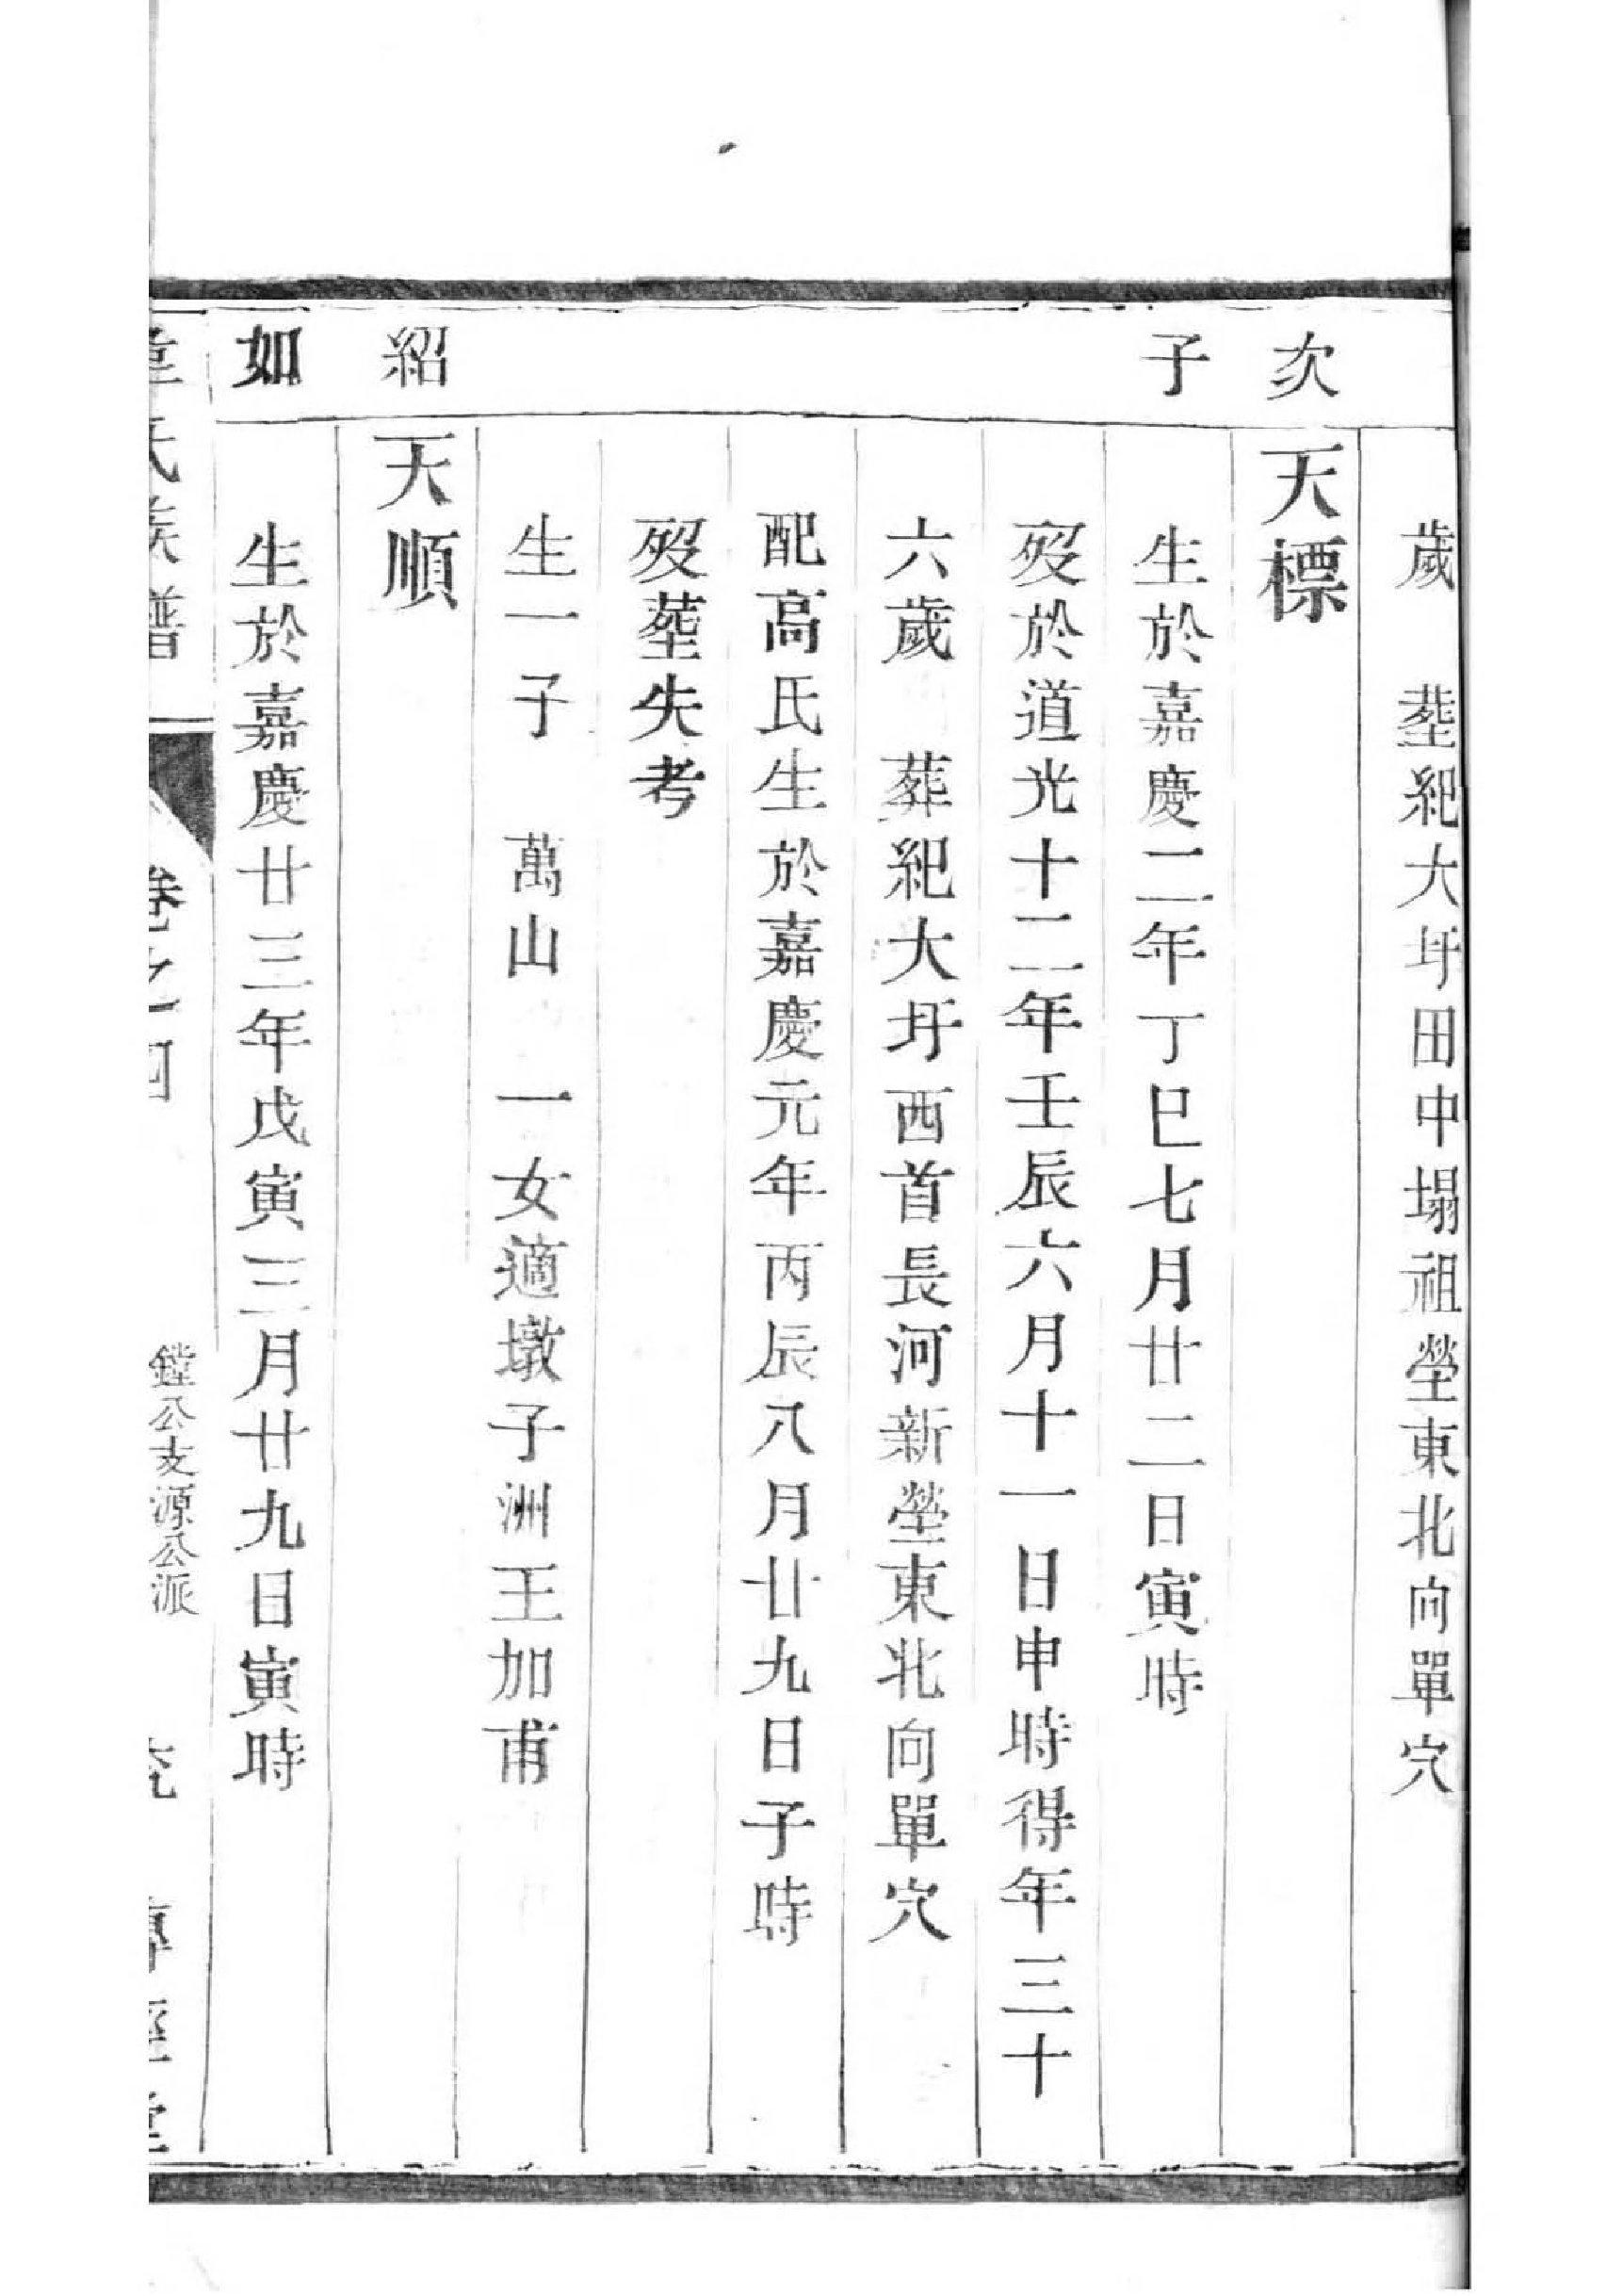 歲　塟紀大圩田中塌祖塋東北向單穴
次　天標
子　生於嘉慶二年丁巳七月廿二日寅時
歿於道光十二年壬辰六月十一日申時得年三十
六歲　葬紀大圩西首長河新塋東北向單穴
配高氏生於嘉慶元年丙辰八月廿九日子時
歿塟失考
生一子　萬山　一女適墩子洲王加甫
紹　天順
如　生於嘉慶廿三年戊寅三月廿九日寅時
氏族譜　卷之四　鏜公支源公派